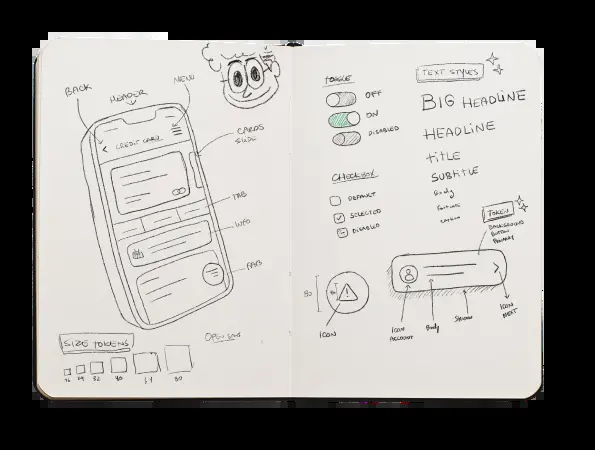 BACK
HEADER
MENU
CREDIT CARD
CARDS
SLIDE
TAB
INFO
FAB
SIZE TOKENS
16 24 32 40 64 80
TOGGLE
OFF
ON
DISABLED
CHECKBOX
DEFAULT
SELECTED
DISABLED
80
ICON
TEXT STYLES
BIG HEADLINE
HEADLINE
TITLE
SUBTITLE
Body
TOKEN
BACKGROUND
BUTTON
PRIMARY
ICON
ACCOUNT
Body
ICON
NEXT